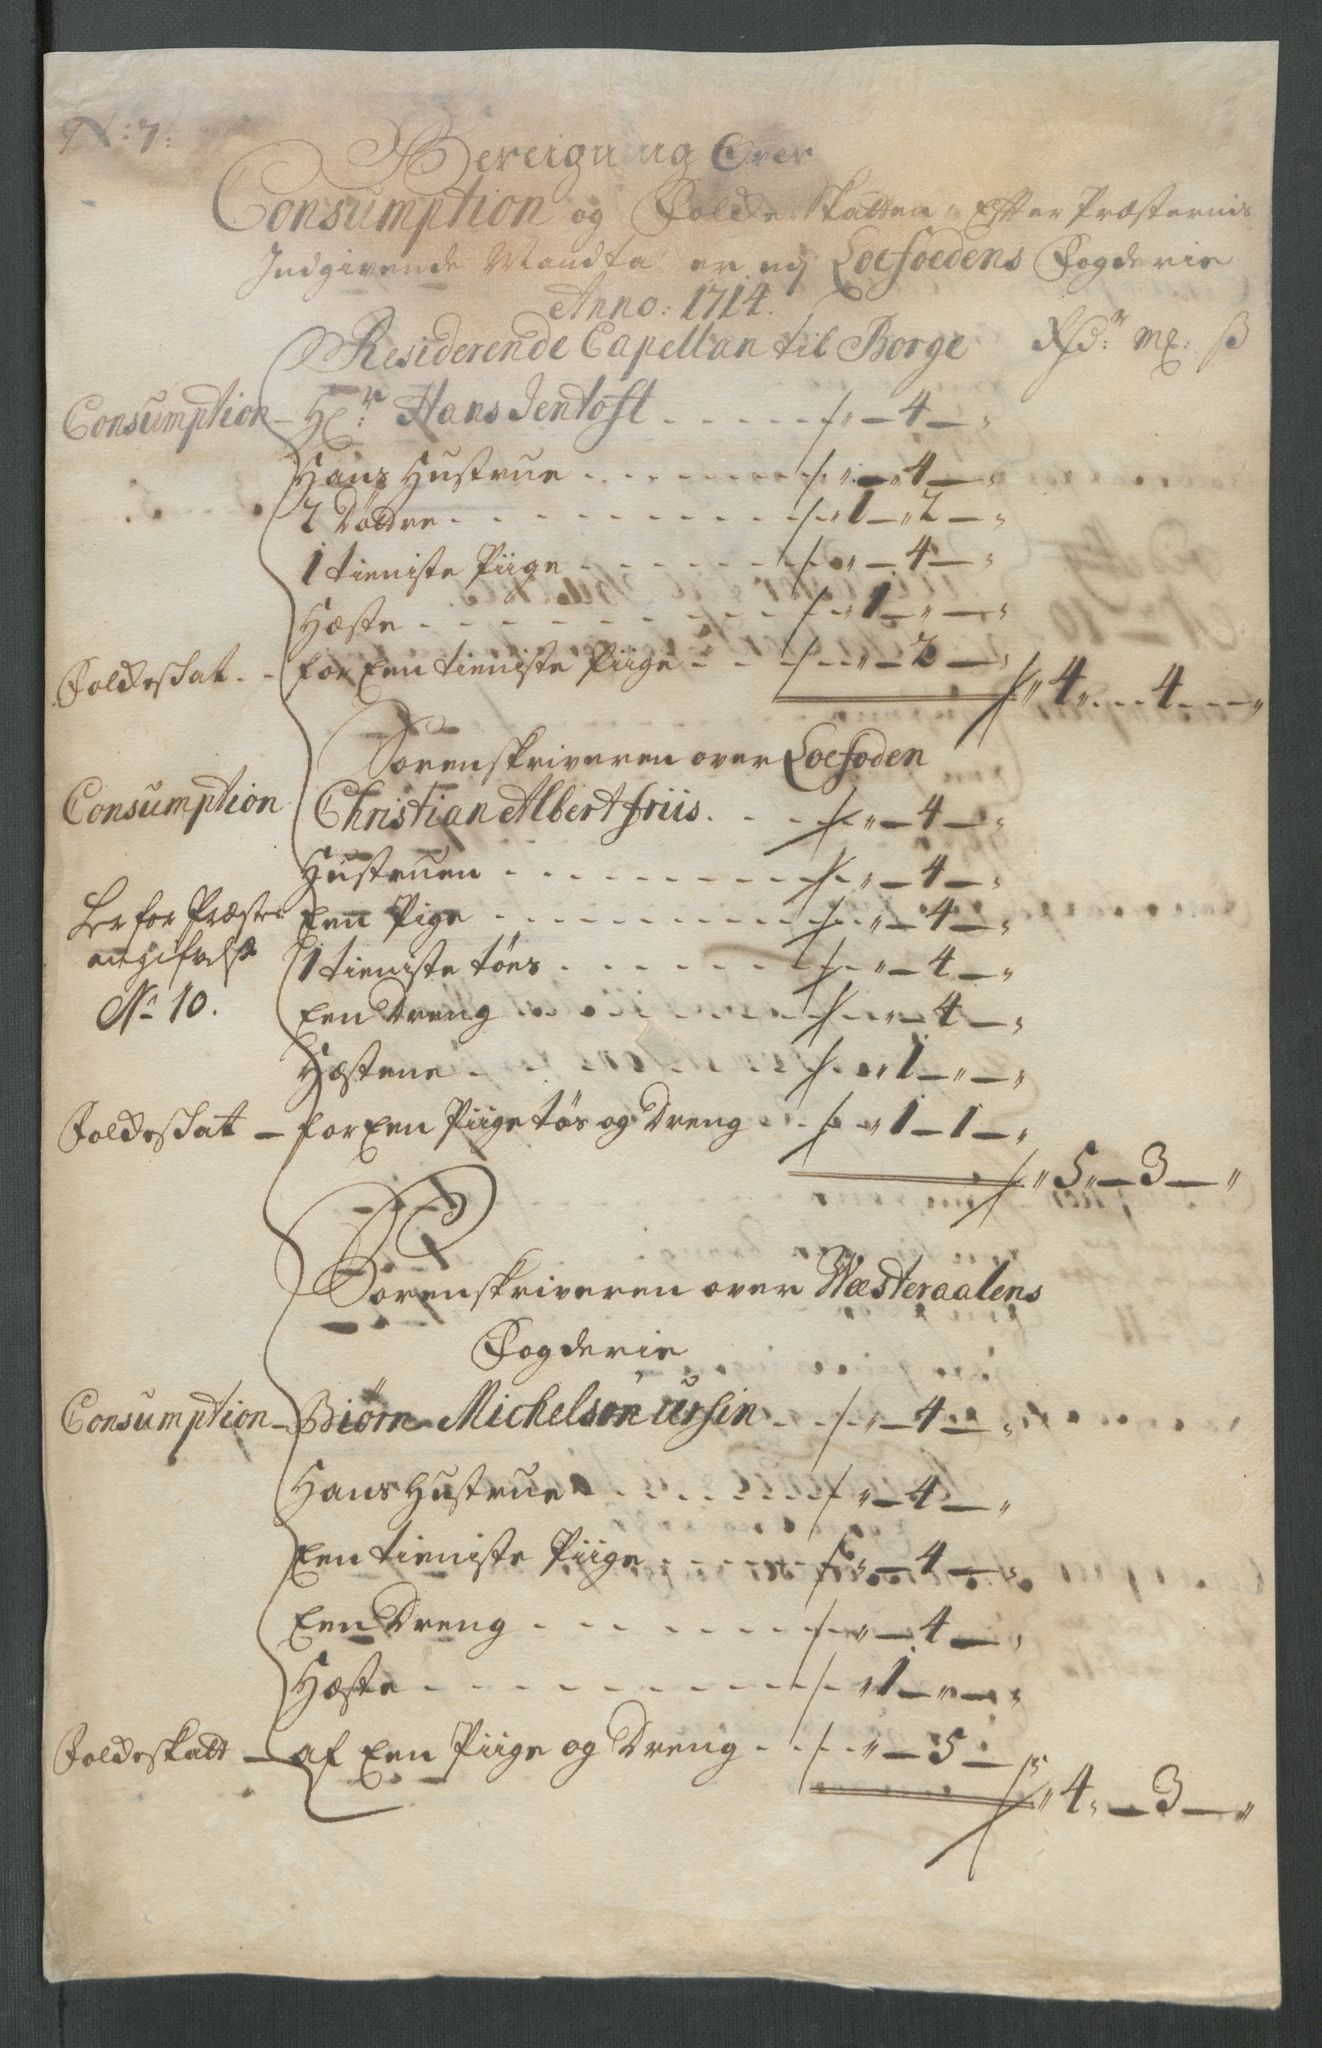 N: 7:
Bereigning Over
Consumption og Folde Skatten, Effter Præsternis
Indgivende Mandta er udj Loefoedens Fogderie
Anno: 1714.
Residerende Capellan til Borge Rdr: Mk: ß
Consumption – Hr: Hans Jentoft . . . . . „ – 4 – „
Hans Hustrue . . . . . „ – 4 – „
2 Døttre . . . . . 1 – 2 – „
1 tieniste Piige . . . . . „ – 4 – „
Hæste . . . . . 1 – „ – „
Foldeskat . . for Een tieniste Piige . . . „ – 2 – „
4 „ . . . 4 . . . „
Sorenskriveren over Loefoden
Consumption Christian Albert friis . . . „ – 4 – „
Hustruen . . . . . „ – 4 – „
Een Pige . . . . . „ – 4 – „
1 tieniste tøes . . . . . „ – 4 – „
Een Dreng . . . . . „ – 4 – „
Hæstene . . . . . 1 – „ – „
for Præstens
angifvelse
No 10.
Foldeskat – for Een Piige tøs og Dreng . . . 1 – 1 – „
5 „ – 3 – „
Sorenskriveren over Wæsteraalens
Fogderie
Consumption – Biørn Michelsøn Ursin . . . „ – 4 – „
Hans Hustrue . . . . . „ – 4 – „
Een tieniste Piige . . . . . „ – 4 – „
Een Dreng . . . . . „ – 4 – „
Hæste . . . . . 1 – „ – „
Foldeskatt – af Een Piige og Dreng . . . „ – 5 – „
4 „ – 3 – „